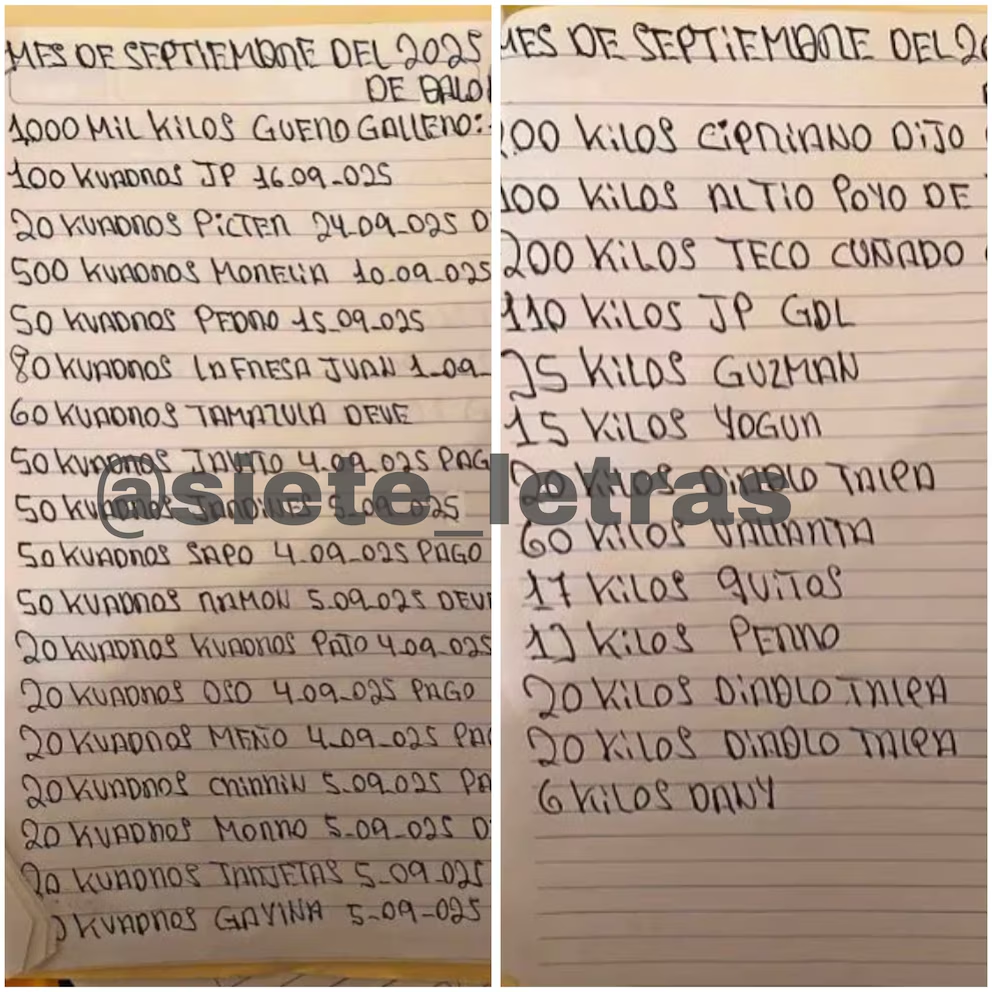 MES DE SEPTIEMBRE DEL 2025
DE BALO
1000 MIL KILOS GUERO GALLERO:
100 KUADROS JP 16.09_025
20 KUADROS PICTER 24_09_025 D
500 KUADROS MORELIA 10.09_025
50 KUADROS PEDRO 15_09_025
80 KUADROS LA FRESA JUAN 1_09_
60 KUADROS TAMAZULA DEVE
50 KUADROS 4.09_025 PAG
50 KUADROS JARDINES 5_09_025
50 KUADROS SAPO 4.09_025 PAGO
50 KUADROS RAMON 5.09.025 DEVE
20 KUADROS KUADROS PATO 4.09_025
20 KUADROS OSO 4.09_025 PAGO
20 KUADROS MEÑO 4_09_025 PAG
20 KUADROS CHIRRIN 5.09.025 PA
20 KUADROS MORRO 5_09_025 D
20 KUADROS TARJETAS 5_09_025
0 KUADROS 5_09_025
MES DE SEPTIEMBRE DEL 20
200 KILOS CIPRIANO DIJO
100 KILOS AL TIO POYO DE
200 KILOS TECO CUÑADO
110 KILOS JP GDL
25 KILOS GUZMAN
15 KILOS YOGUR
20 KILOS DIABLO TALPA
60 KILOS VALLARTA
17 KILOS QUITOS
13 KILOS PERRO
20 KILOS DIABLO TALPA
20 KILOS DIABLO TALPA
6 KILOS DANY
@siete_letras